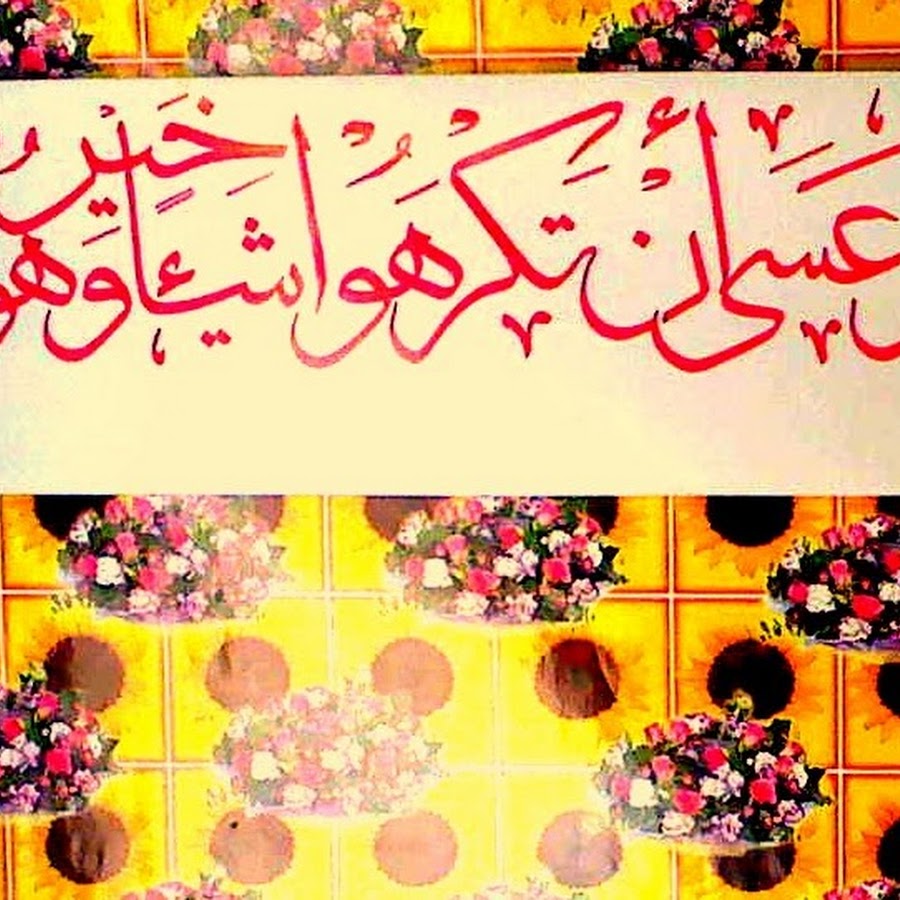 وَعَسَى أَنْ تَكْرَهُوا شَيْئًا وَهُوَ خَيْرٌ